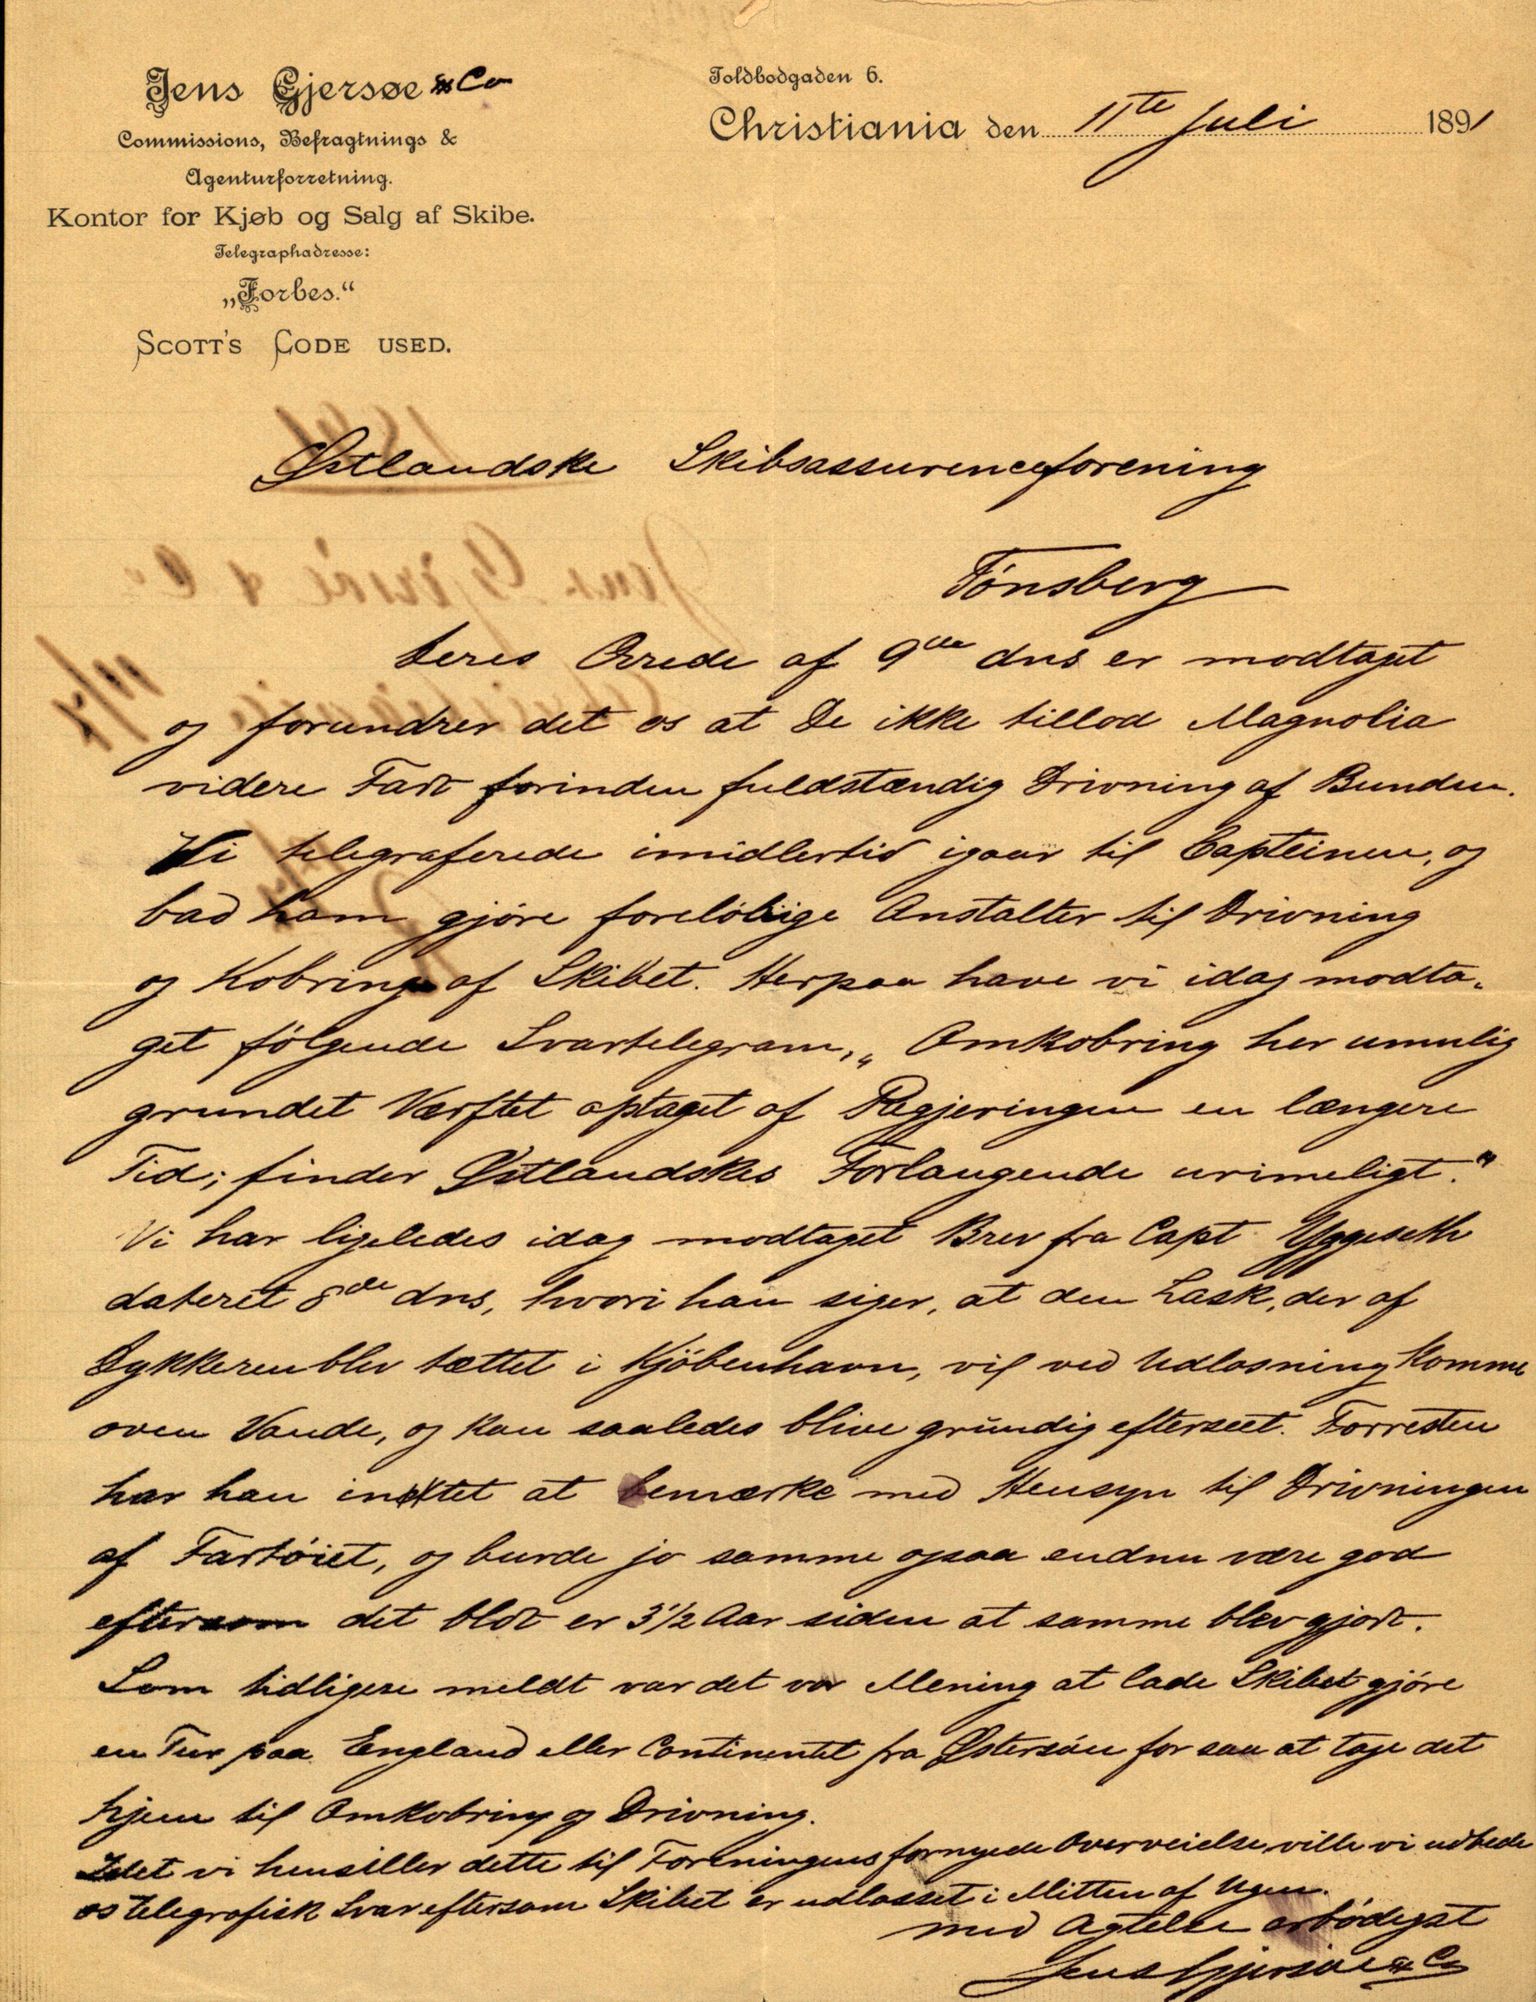 Jens Gjersøe & Co
Commissions, Befragtnings &
Agenturforretning.
Kontor for Kjøb og Salg af Skibe.
Telegraphadresse:
„Forbes.“
SCOTT'S CODE USED.
Toldbodgaden 6.
Christiania den 11te Juli 1891
Østlandske Skibsassuranceforening
Tønsberg
Deres Ærede af 9de dns er modtaget
og forundrer det os at De ikke tillod Magnolia
videre Fart forinden fuldstændig Drivning af Bunden.
Vi telegraferede imidlertid igaar til Capteinen, og
bad ham gjøre foreløbige Anstalter til Drivning
og Kobring af Skibet. Herpaa have vi idag modta-
get følgende Svartelegram, „Omkobring her umulig
grundet Værftet optaget af Regjeringen en længere
Tid; finder Østlandskes Forlangende urimeligt.“
Vi har ligeledes idag modtaget Brev fra Capt Yggeseth
dateret 8de dns, hvori han siger, at den Lask, der af
Dykkeren blev tættet i Kjøbenhavn, vil ved Udlosning komme
oven Vande, og kan saaledes blive grundig efterseet. Forresten
har han intet at bemærke med Hensyn til Drivningen
af Fartøiet, og burde jo samme ogsaa endnu være god
eftersom det blot er 3 1/2 Aar siden at samme blev gjort.
Som tidligere meldt var det vor Mening at lade Skibet gjøre
en Tur paa England eller Continentet fra Østersøen for saa at tage det
hjem til Omkobring og Drivning.
Idet vi henstiller dette til Foreningens fornyede Overveielse, ville vi udbede
os telegrafisk Svar eftersom Skibet er udlosset i Mitten af Ugen.
med Agtelse ærbødigst
Jens Gjersøe & Co